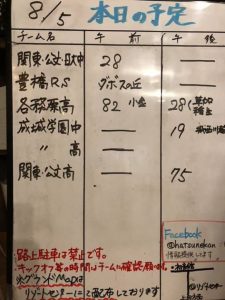 8/5 本日の予定
チーム名 午前 午後
関東・公文・日大中 28 —
豊橋RS ダボスの丘
各務原高 82 28
成城学園中 — 19
〃 高 — —
関東・公文高 — 75
Facebook
@hatsunekan
情報提供してます
・路上駐車は禁止です。
・キックオフ等の時間はチームに確認願います。
※グラウンドMapは
リゾートセンターにて配布しております